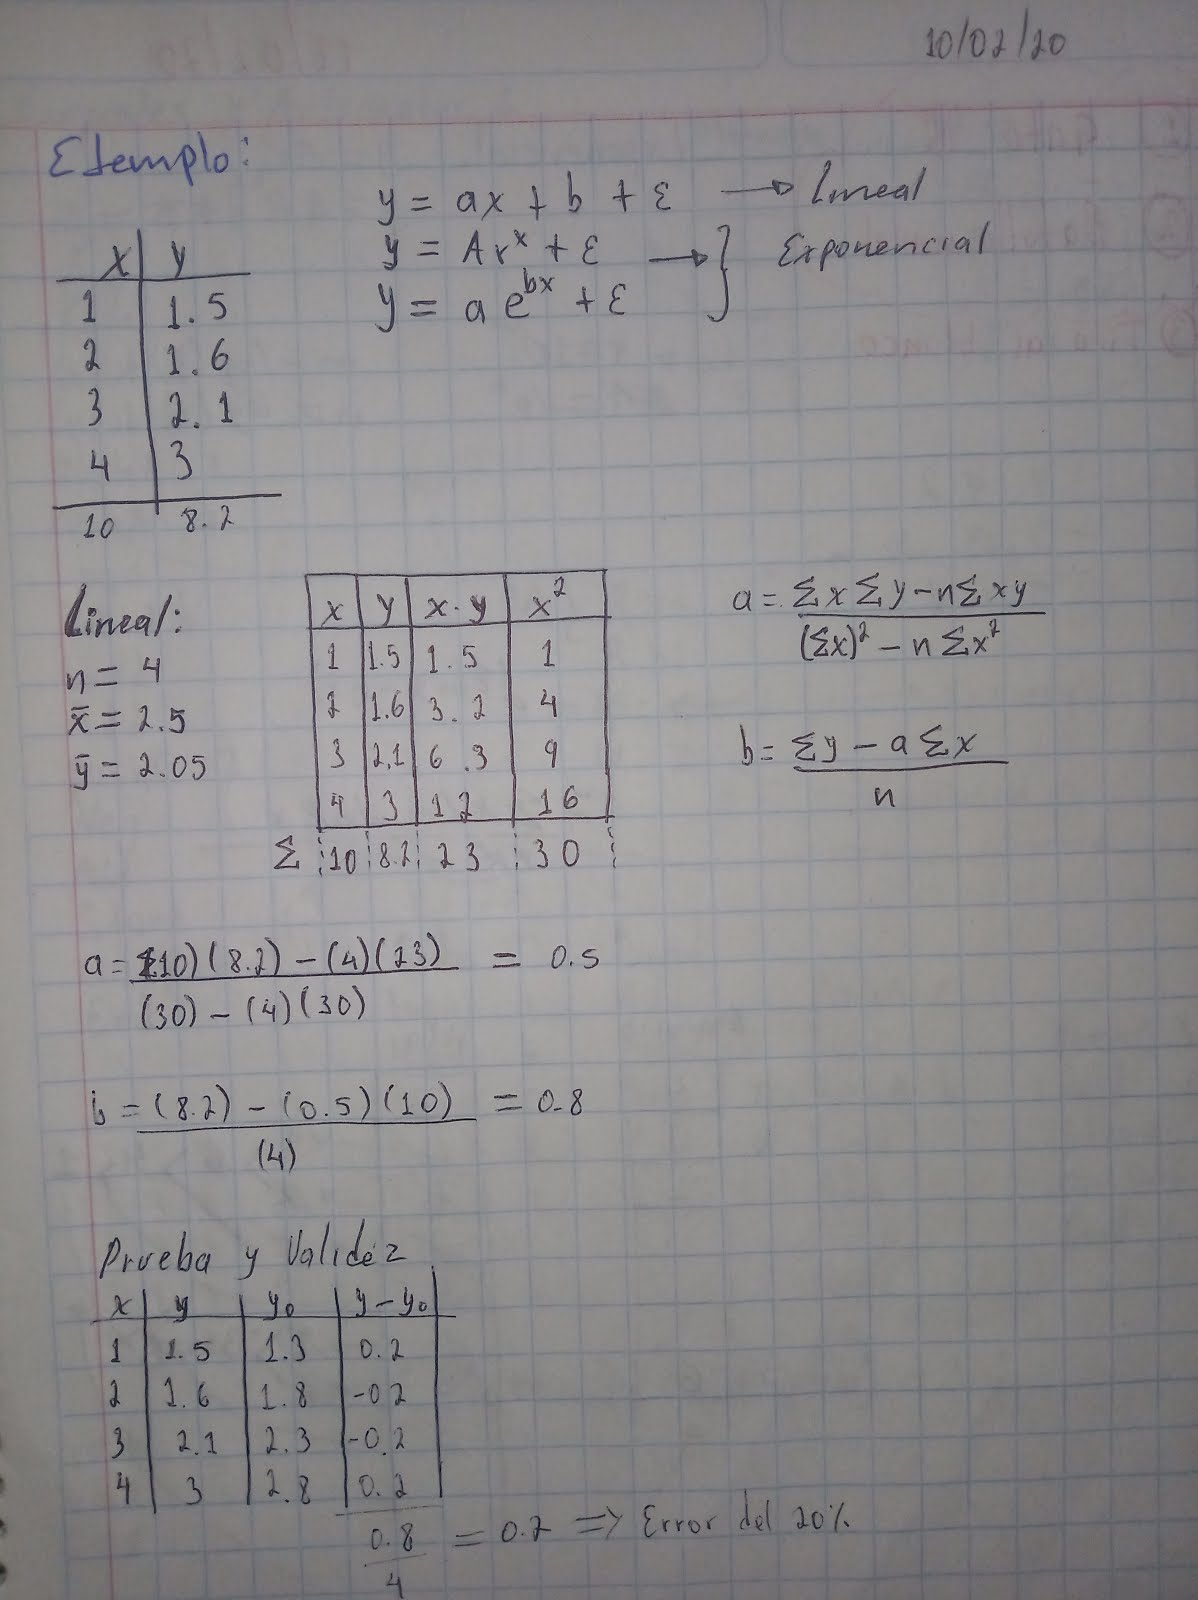 10/02/20
Ejemplo:
y = ax + b + ε → Lineal
y = Ar^x + ε → } Exponencial
y = a e^bx + ε
x | y
1 | 1.5
2 | 1.6
3 | 2.1
4 | 3
10 | 8.2
Lineal:
n = 4
x̄ = 2.5
ȳ = 2.05
x | y | x·y | x²
1 | 1.5 | 1.5 | 1
2 | 1.6 | 3.2 | 4
3 | 2.1 | 6.3 | 9
4 | 3 | 12 | 16
Σ 10 | 8.2 | 23 | 30
a = Σx Σy - nΣxy
(Σx)² - nΣx²
b = Σy - aΣx
n
a = (10)(8.2) - (4)(23) = 0.5
(30) - (4)(30)
b = (8.2) - (0.5)(10) = 0.8
(4)
Prueba y Validéz
x | y | y₀ | y - y₀
1 | 1.5 | 1.3 | 0.2
2 | 1.6 | 1.8 | -0.2
3 | 2.1 | 2.3 | -0.2
4 | 3 | 2.8 | 0.2
0.8 = 0.2 => Error del 20%
4